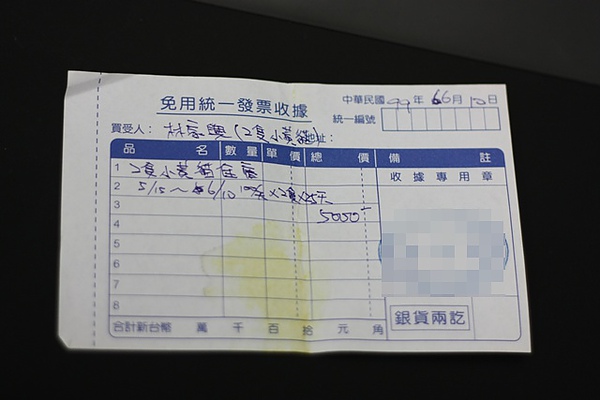 免用統一發票收據
中華民國 99 年 6 月 10 日
統一編號
買受人： 林 (2隻小黃貓) 址：
品 名 數量 單 價 總 價 備 註
1 2隻小黃貓住宿
收據專用章
2 5/15～6/10 100元×2隻×25天
3 5000
4
5
6
7
8
銀貨兩訖
合計新台幣 萬 千 百 拾 元 角